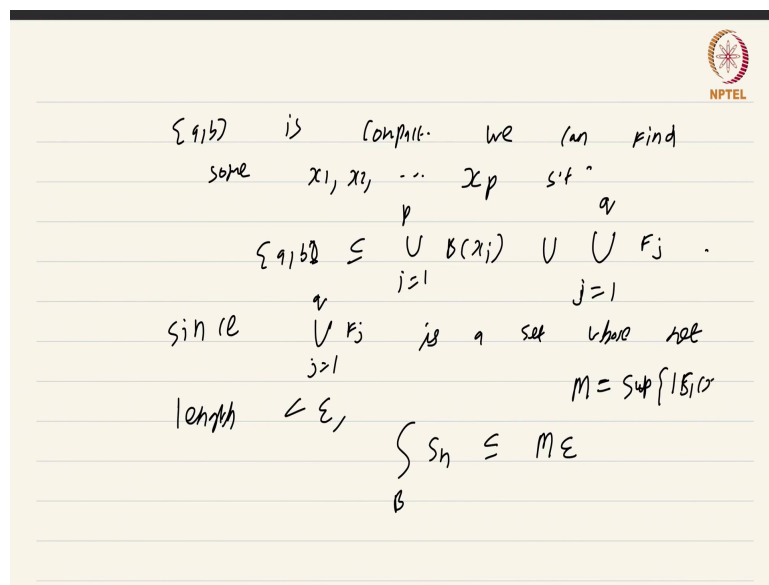 NPTEL
[a,b] is compact. we can find
some x1, x2, ... xp s.t.
[a,b] ⊆ ⋃_{j=1}^{p} B(xj) ∪ ⋃_{j=1}^{q} Fj .
since ⋃_{j=1}^{q} Fj is a set whose net
M = sup{|
length < ε,
∫_B Sn ≤ Mε